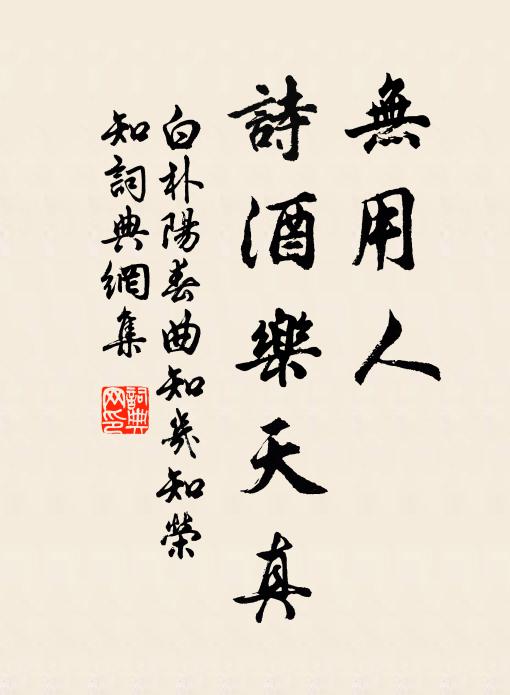 無用人
詩酒樂天真
白朴陽春曲知幾知榮
知詞典網集
詞典
网印